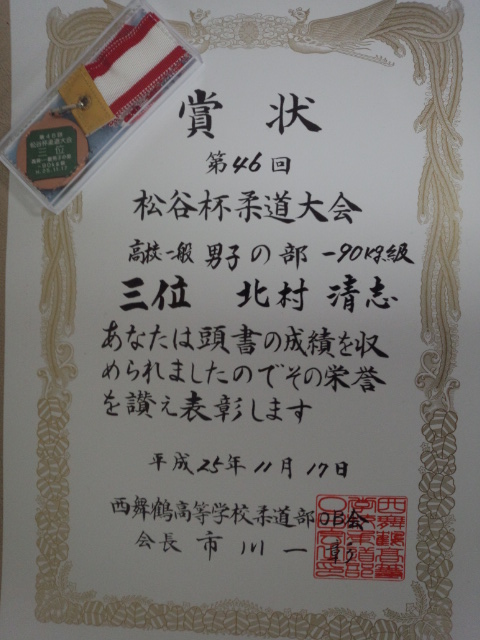 賞状
第46回
松谷杯柔道大会
高校一般 男子の部 -90kg級
三位 北村 清志
あなたは頭書の成績を収
められましたのでその栄誉
を讃え表彰します
平成25年11月17日
西舞鶴高等学校柔道部OB会
会長 市川一彰
第46回
松谷杯柔道大会
三位